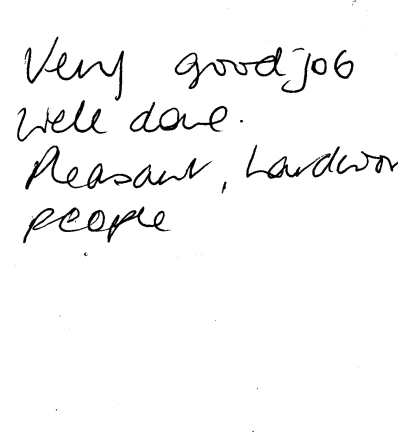 Very good job
Well done.
Pleasant, hardwor
people